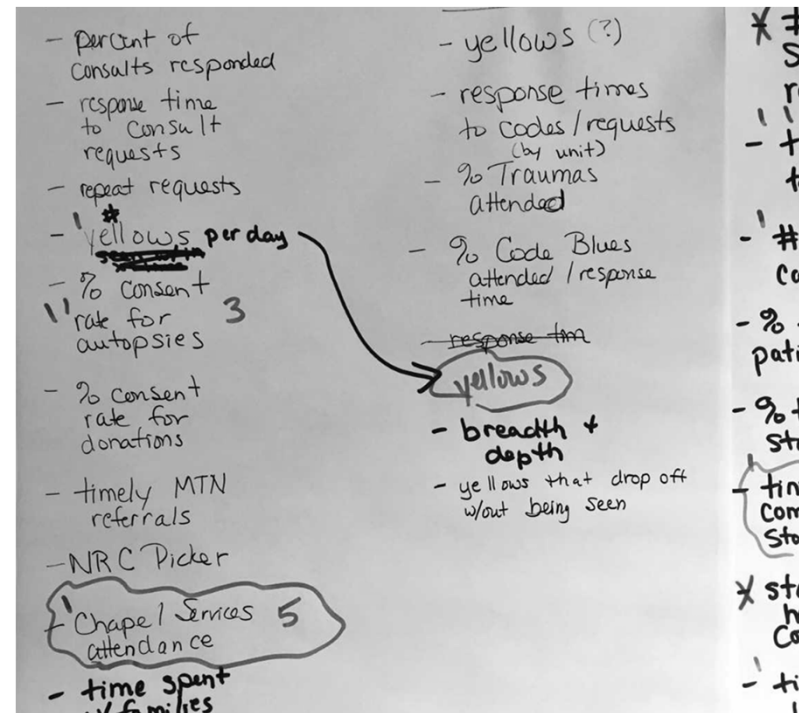 - percent of
consults responded
- response time
to consult
requests
- repeat requests
- # yellows per day
- % consent
rate for 3
autopsies
- % consent
rate for
donations
- timely MTN
referrals
- NRC Picker
- Chapel Services 5
attendance
- time spent
w/ families
- yellows (?)
- response times
to codes/requests
(by unit)
- % Traumas
attended
- % Code Blues
attended/response
time
- response tim
yellows
- breadth +
depth
- yellows that drop off
w/out being seen
#
- #
- %
- %